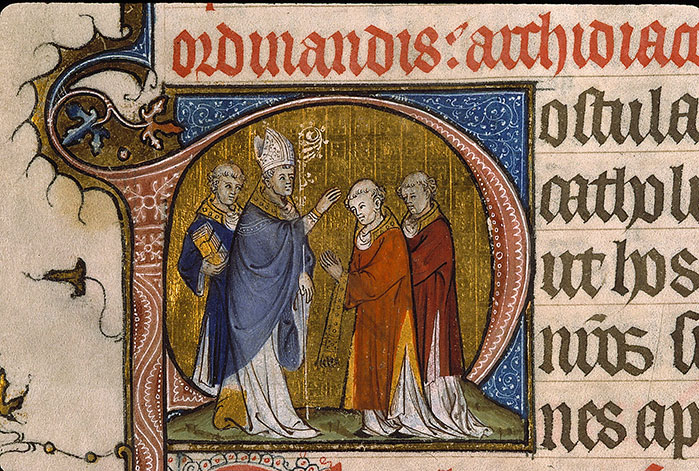 ordinandis: archidiac
Postula
catholi
ut hos
nr̄os s
nes ap